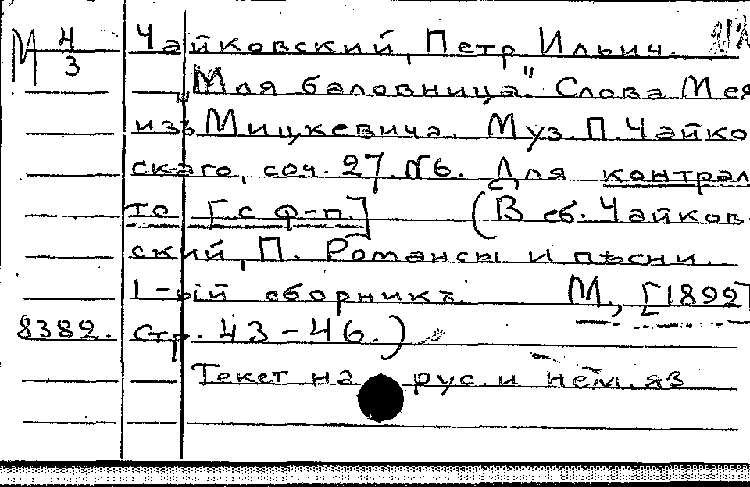 М 4/3 Чайковский, Петр Ильич.
„Моя баловница" Слова Мея
изъ Мицкевича. Муз. П. Чайко
скаго, соч. 27 №6. Для контрал
то [с ф-п.] (В сб. Чайков-
ский, П. Романсы и пѣсни.
1-ый сборникъ. М., [1892]
8382. стр. 43-46.)
Текст на рус. и нем. яз